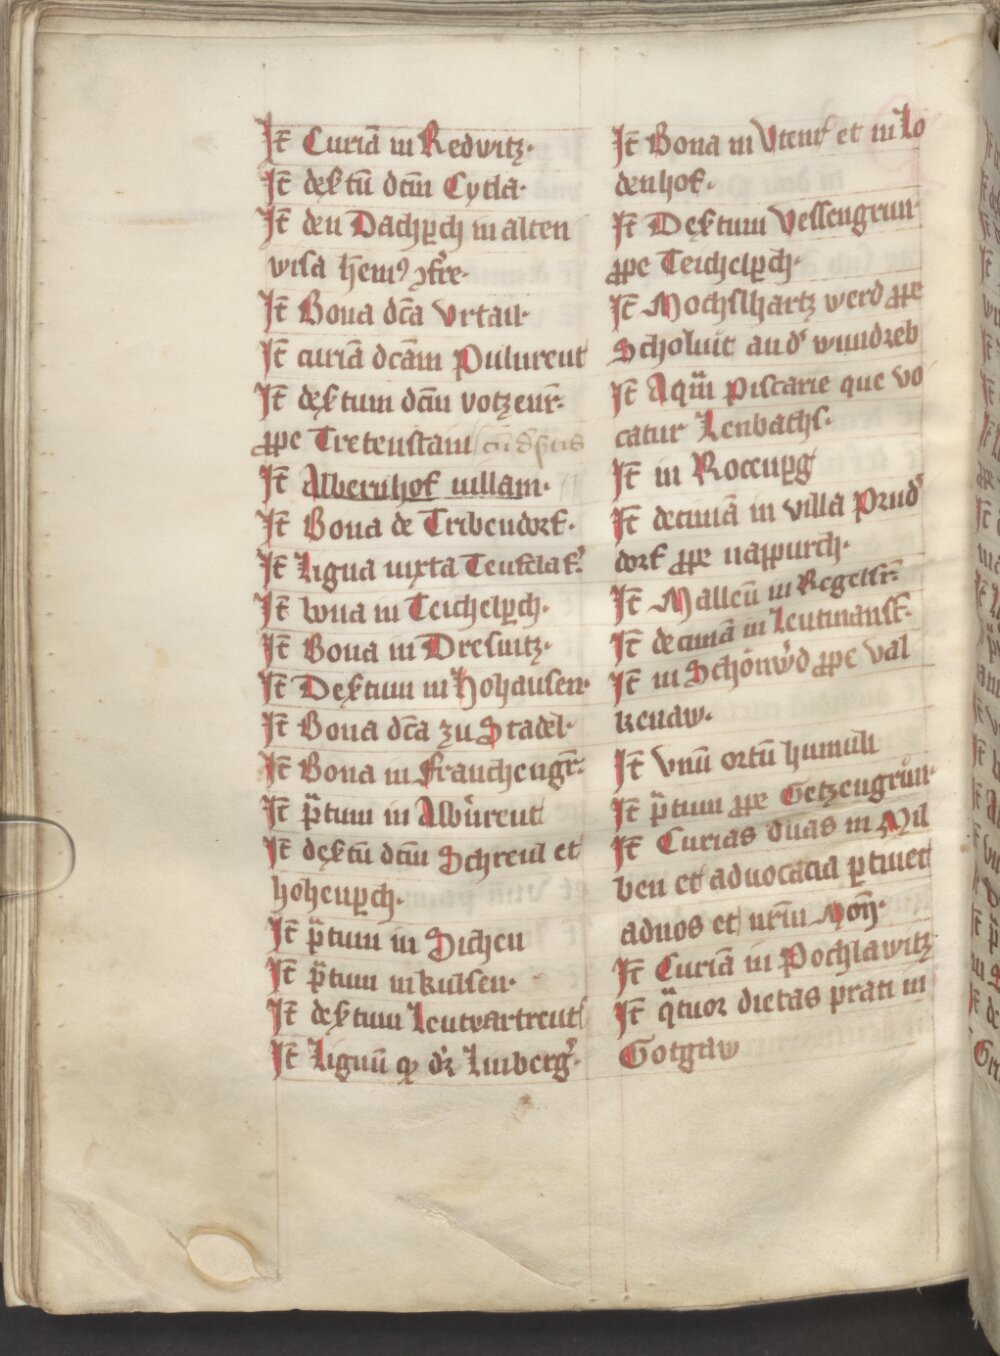 Jt̄ Curiā in Redwitz·
Jt̄ deſ̨tū dcm̄ Cytla·
Jt̄ den Dachꝑch in alten
viſa hem̄ꝰ ꝯfr̄e·
Jt̄ Bona dcā Vrtail·
Jt̄ curiā dcām Pulnreut
Jt̄ deſ̨tum dcm̄ votzenr̄·
ꝓpe Tretenſtain cū
Jt̄ Albernhof villam·
Jt̄ Bona de Tribendorf·
Jt̄ Ligna iuxta Teufelaf·
Jt̄ bona in Teichelꝑch·
Jt̄ Bona in Dreſnitz·
Jt̄ Deſ̨tum in Hohauſen·
Jt̄ Bona dcā zu Stadel·
Jt̄ Bona in Frauchengr̄·
Jt̄ pͣtum in Albn̄reut
Jt̄ deſ̨tū dcm̄ Schreul et
hohenꝑch·
Jt̄ pͣtum in Sichen
Jt̄ pͣtum in kulſen·
Jt̄ deſ̨tum Leutvartreut
Jt̄ Lignū qͦ dr̄ Luiberg·
Jt̄ Bona in Vtenſ et in Lo
denhof·
Jt̄ Deſ̨tum Veſſengrun
ꝓpe Teichelꝑch·
Jt̄ Mochſlhartz werd ꝓpe
Scholuit an dˀ wundreb
Jt̄ Aqm̄ piſcarie que vo
catur Lenbachſ·
Jt̄ in Rotenꝑg
Jt̄ decimā in villa Prudˀ
dorf ꝓpe nappurch·
Jt̄ Malleū in Regelſr̄·
Jt̄ decimā in Leutmanſſ·
Jt̄ in Schönw̄d ꝓpe val
kenaw·
Jt̄ Vnū ortū humuli
Jt̄ pͣtum ꝓpe Getzengrün·
Jt̄ Curias duas in Mil
ben et aduocacia ꝑtinet
ad nos et nr̄m Mon̄·
Jt̄ Curiā in Pochlawitz
Jt̄ qͣtuor dietas prati in
Gotgaw